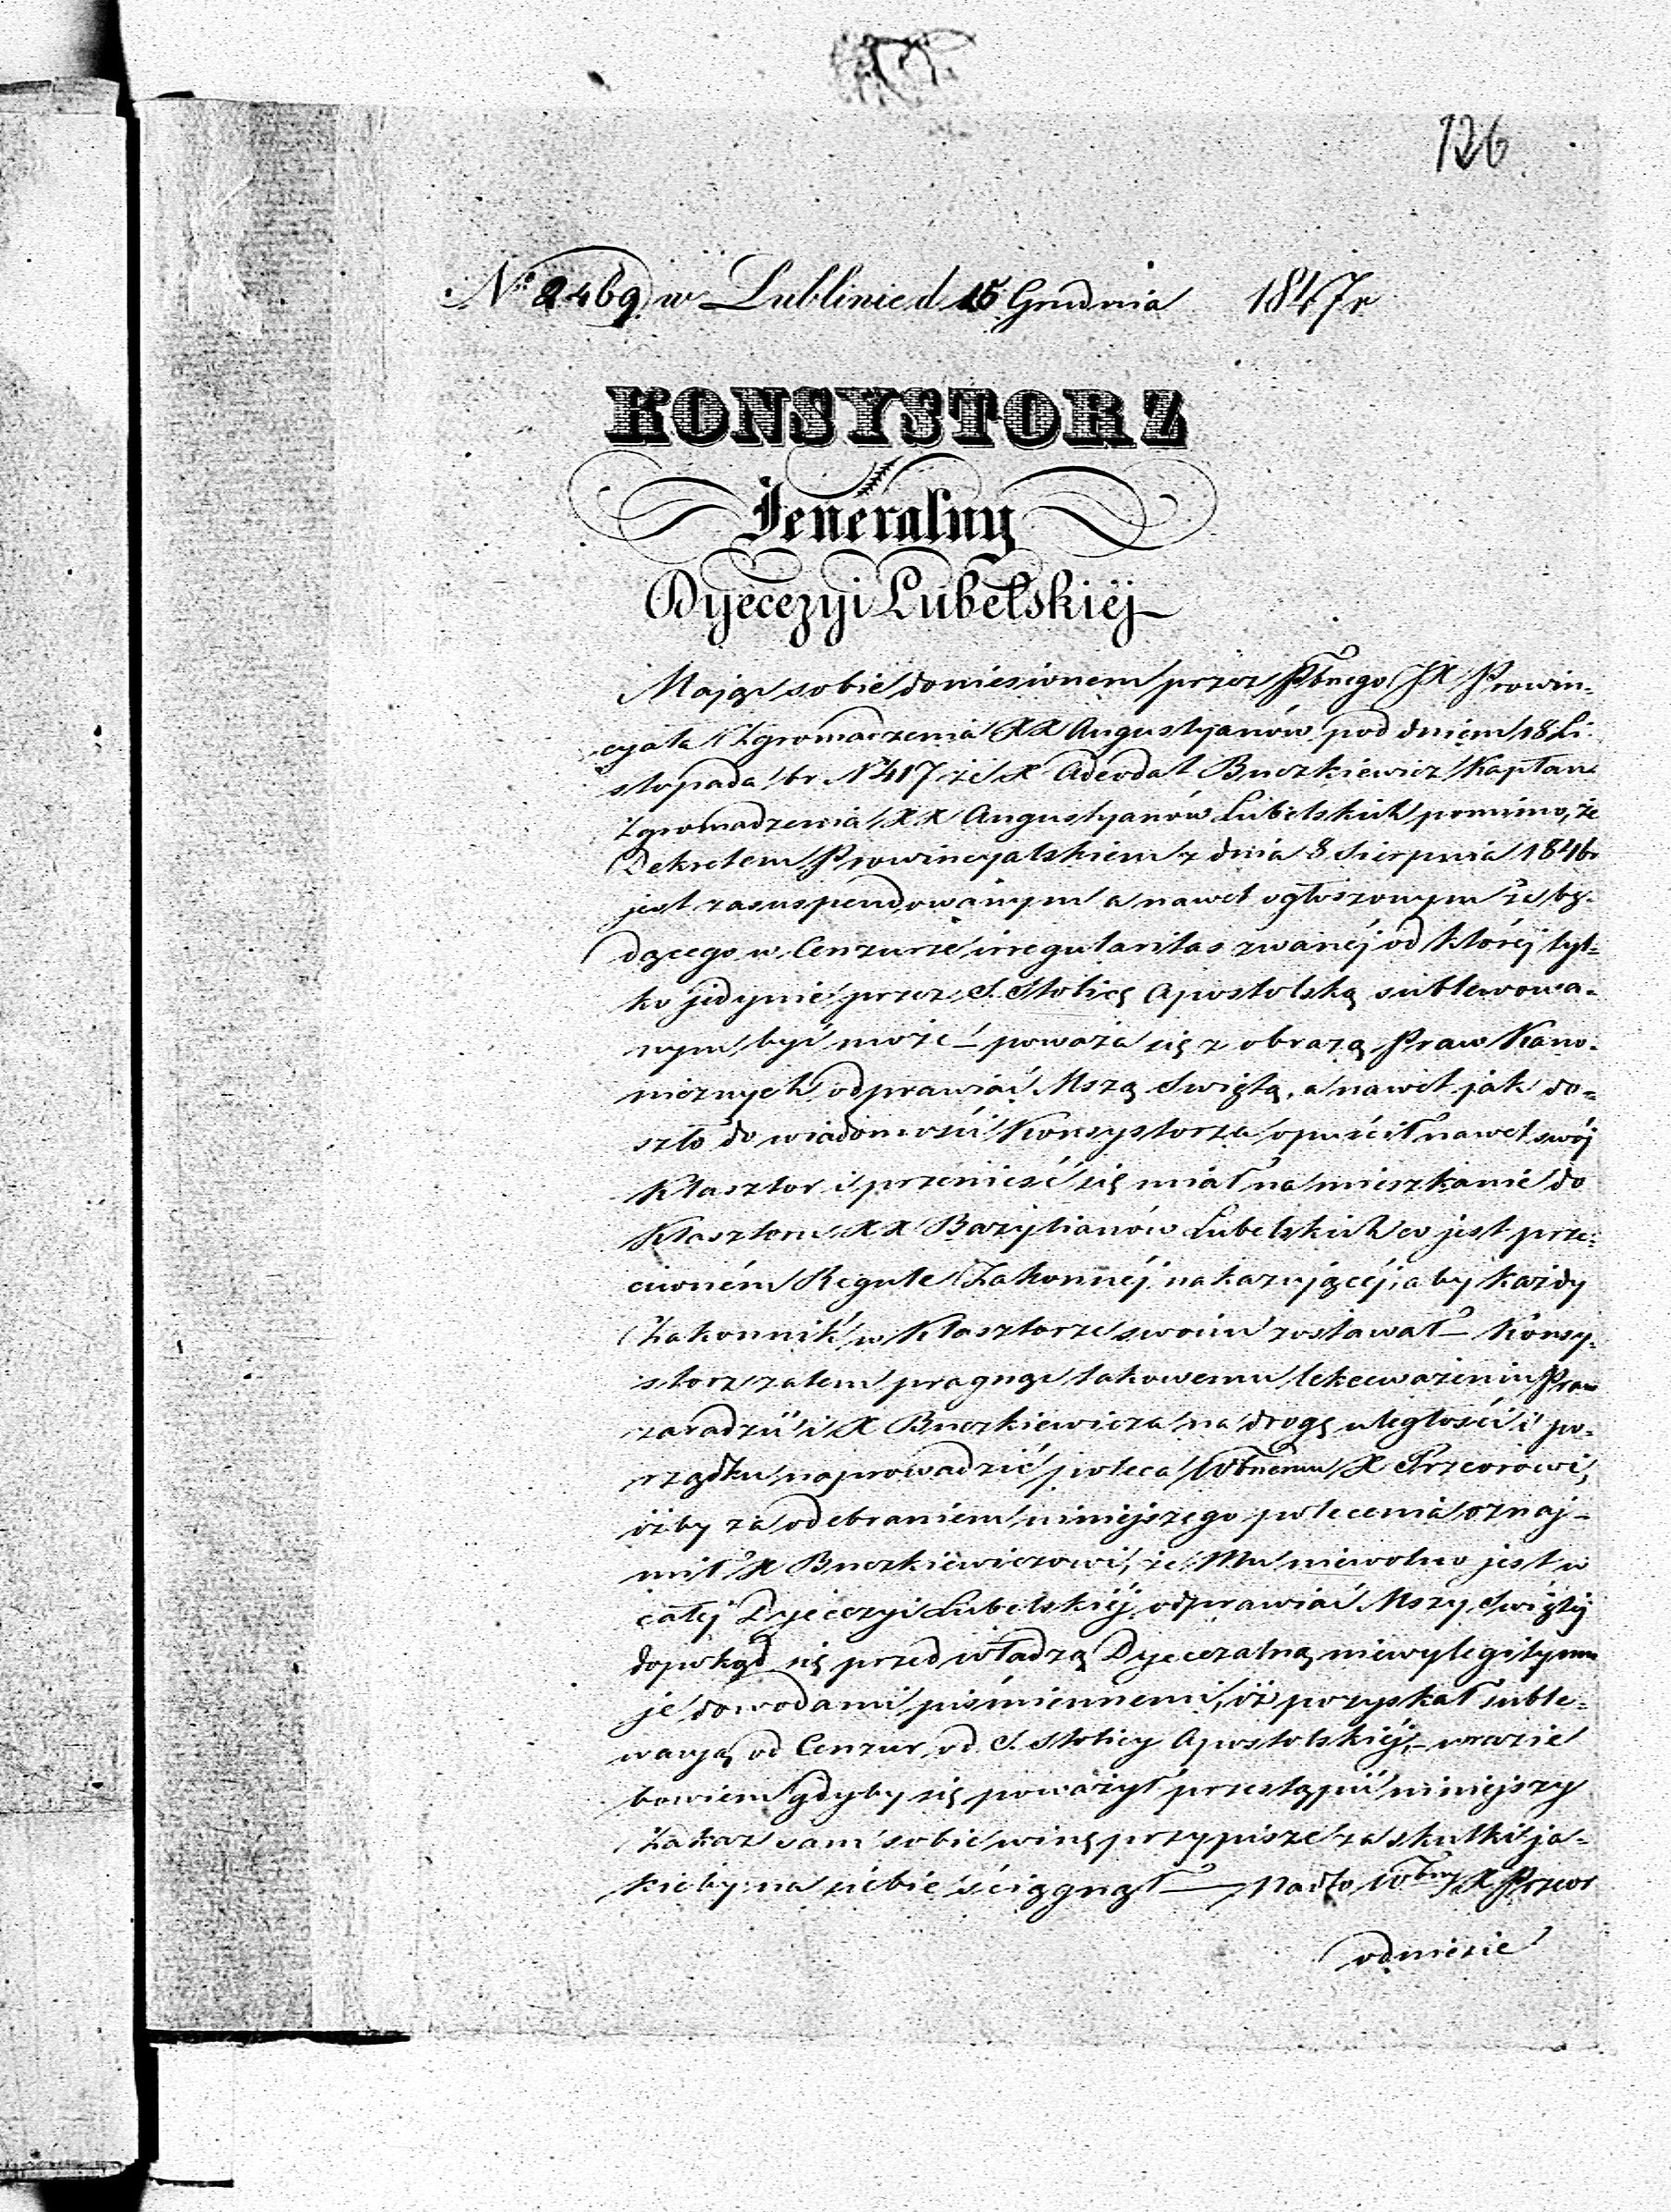 126
Nº 2469 w Lublinie d. 15 Grudnia 1847 r
KONSYSTORZ
Jeneralny
Dyecezyi Lubelskiéj
Mając sobie doniesionem przez Pbnego JX Prowin-
cyała Zgromadzenia XX Augustyanów pod dniem 18 Li-
stopada br N 417 że X Adeodat Buczkiewicz Kapłan
Zgromadzenia XX Augustyanów Lubelskich pomimo, że
Dekretem Prowincyalskiem z dnia 8 Sierpnia 1846 r
jest zasuspendowanym a nawet ogłoszonym że bę-
dącego w Cenzurze irregularitas zwanéj od któréj tyl-
ko jedynie przez S. Stolicę Apostolską sublewowa-
nym być może – poważa się z obrazą Praw Kano-
nicznych odprawiać Mszą Swiętą, a nawet jak do-
szło do wiadomości Konsystorza opuścił nawet swój
Klasztor i przenieść się miał na mieszkanie do
Klasztoru XX Bazylianów Lubelskich co jest prze-
ciwném Regule Zakonnéj nakazującéj, aby każdy
Zakonnik w Klasztorze swoim zostawał – Konsy-
storz zatem pragnąc takowemu lekceważeniu Praw
zaradzić i X Buczkiewicza na drogę uległości i po-
rządku naprowadzić poleca Wbnemu X Przeorowi,
iżby za odebraniem niniejszego polecenia oznaj-
mił X Buczkiewiczowi, że Mu niewolno jest w
całej Dyecezyi Lubelskiéj odprawiać Mszy Swiętéj
dopokąd się przed władzą Dyecezalną niewylegitymu
je dowodami piśmiennemi, iż pozyskał suble-
wacyą od Cenzur od S. Stolicy Apostolskiéj, – w razie
bowiem gdyby się poważył przestąpić niniejszy
Zakaz sam sobie winę przypisze za skutki ja-
kieby na siebie ściągnął — Nadto Wbny X Przeor
odniesie